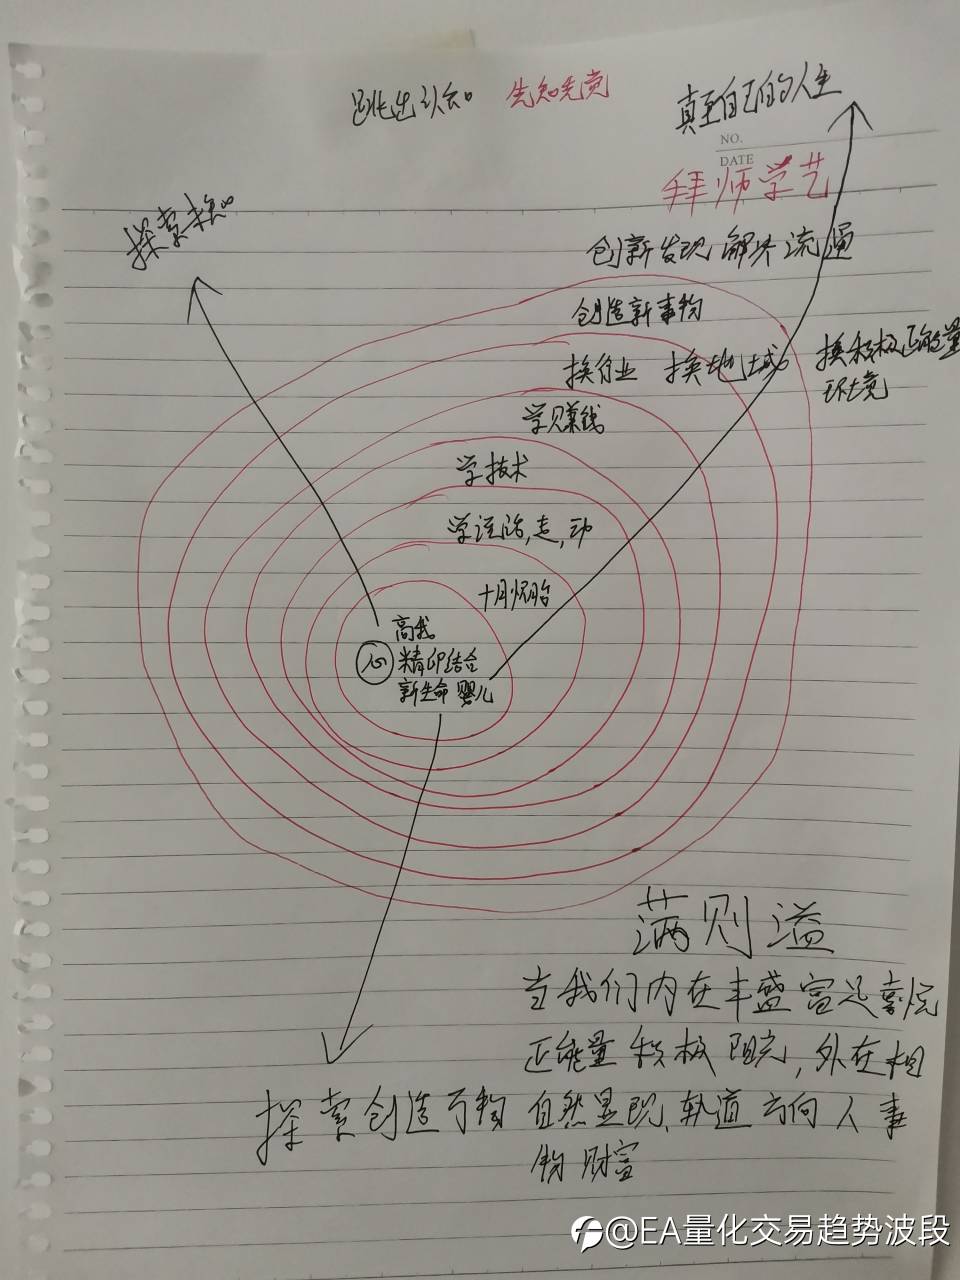 跳出认知 先知先觉
真至自己的人生
NO.
DATE
拜师学艺
探索求知
创新发现 解决 流通
创造新事物
换行业 换地域 换积极正能量
环境
学赚钱
学技术
学说话,走,动
十月怀胎
高我
心 精卵结合
新生命 婴儿
满则溢
当我们内在丰盛富足喜悦
正能量 积极 阳光,外在相
探索创造万物 自然显现,轨道方向人事
物财富
@EA量化交易趋势波段